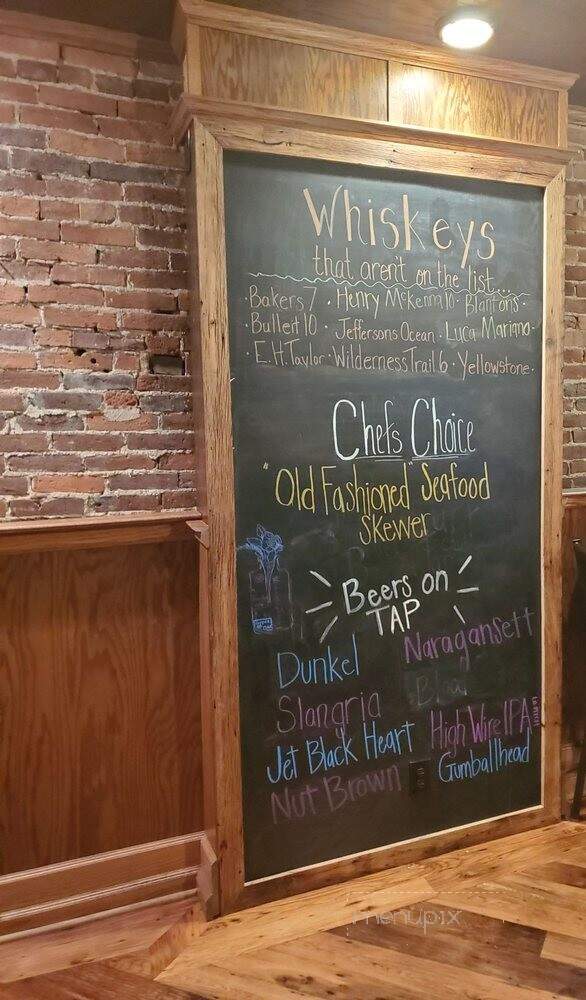 Whiskeys
that aren't on the list...
·Bakers 7 · Henry McKenna 10 · Blantons ·
Bulleit 10 · Jeffersons Ocean · Luca Mariano ·
· E.H. Taylor · Wilderness Trail 6 · Yellowstone ·
Chefs Choice
"Old Fashioned" Seafood
Skewer
Beers on
TAP
Dunkel
Naragansett
Slangria
Jet Black Heart
High Wire IPA
Nut Brown
Gumballhead
menupix